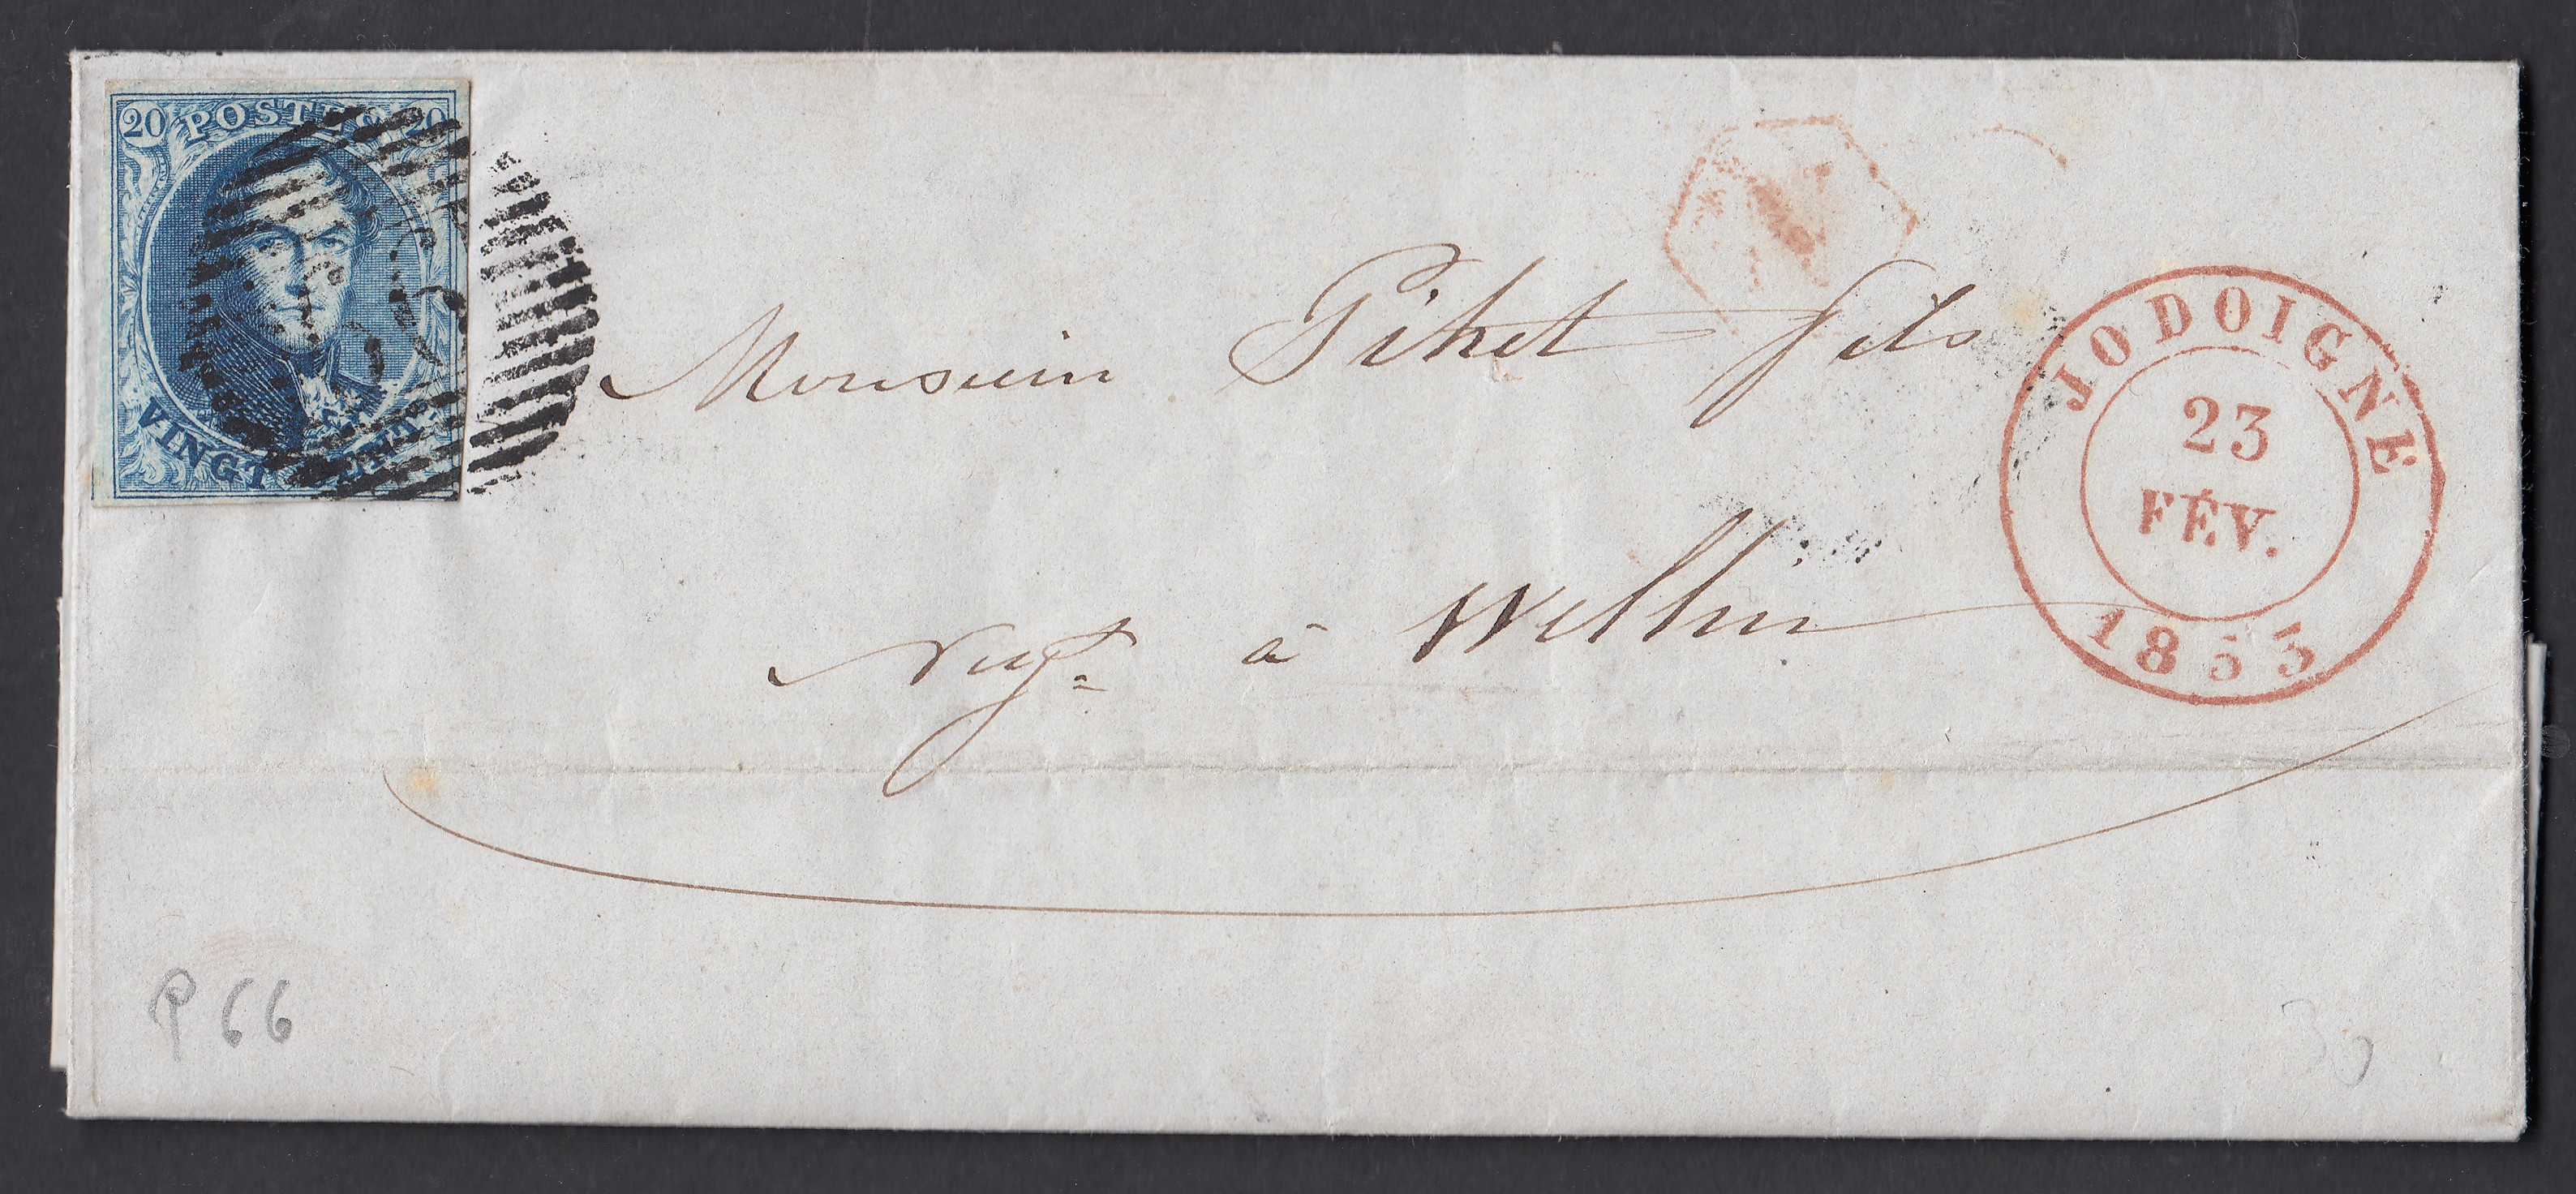 20 POSTES 20
VINGT CENTS
Monsieur Pihet fils
Negt à Wellin
JODOIGNE
23
FÉV.
1853
P 66
30